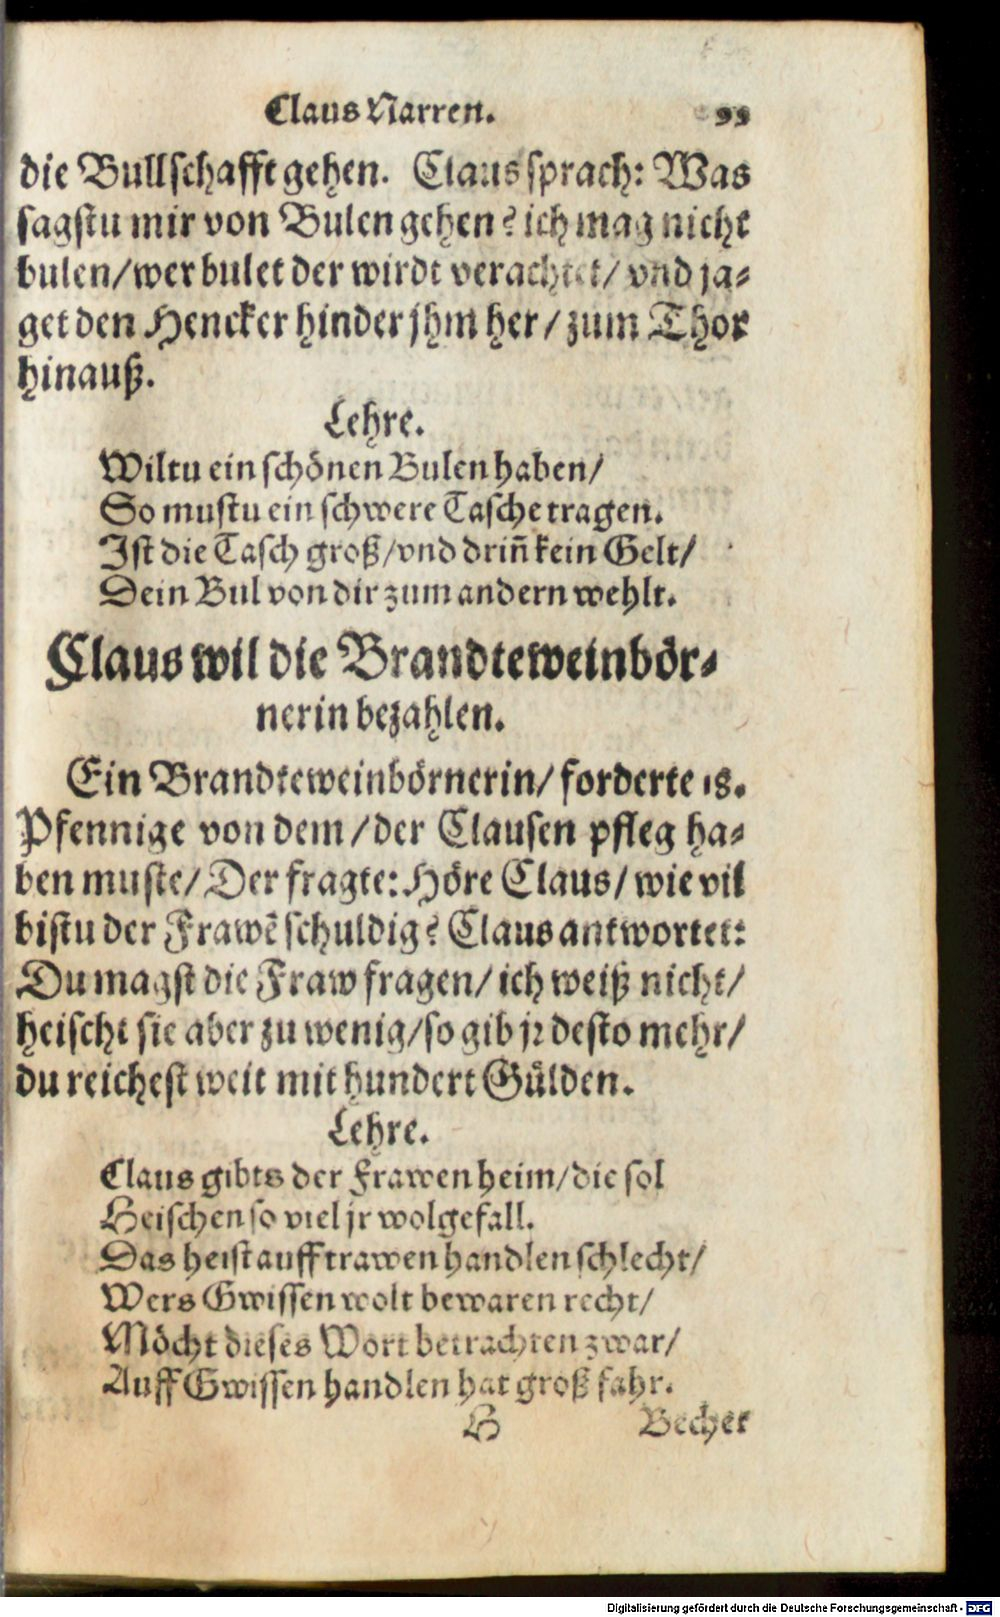 Claus Narren. 99
die Bullschafft gehen. Claus sprach: Was
sagstu mir von Bulen gehen? ich mag nicht
bulen/wer bulet der wirdt verachtet/ vnd ja⸗
get den Hencker hinder jhm her/ zum Thor
hinauß.
Lehre.
Wiltu ein schönen Bulen haben/
So mustu ein schwere Tasche tragen.
Ist die Tasch groß/vnd driñ kein Gelt/
Dein Bul von dir zum andern wehlt.
Claus wil die Brandteweinbör⸗
nerin bezahlen.
Ein Brandteweinbörnerin/ forderte 18.
Pfennige von dem/der Clausen pfleg ha⸗
ben muste/ Der fragte: Höre Claus/ wie vil
bistu der Frawẽ schuldig? Claus antwortet:
Du magst die Fraw fragen/ ich weiß nicht/
heischt sie aber zu wenig/so gib jr desto mehr/
du reichest weit mit hundert Gülden.
Lehre.
Claus gibts der Frawen heim/die sol
Heischen so viel jr wolgefall.
Das heist auff trawen handlen schlecht/
Wers Gwissen wolt bewaren recht/
Möcht dieses Wort betrachten zwar/
Auff Gwissen handlen hat groß fahr.
H Becher
Digitalisierung gefördert durch die Deutsche Forschungsgemeinschaft - DFG